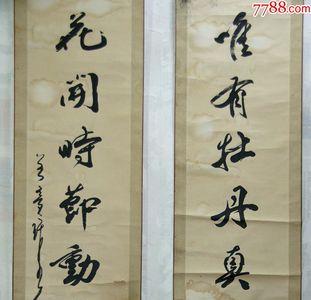 唯有牡丹真
花開時節動
7788.com